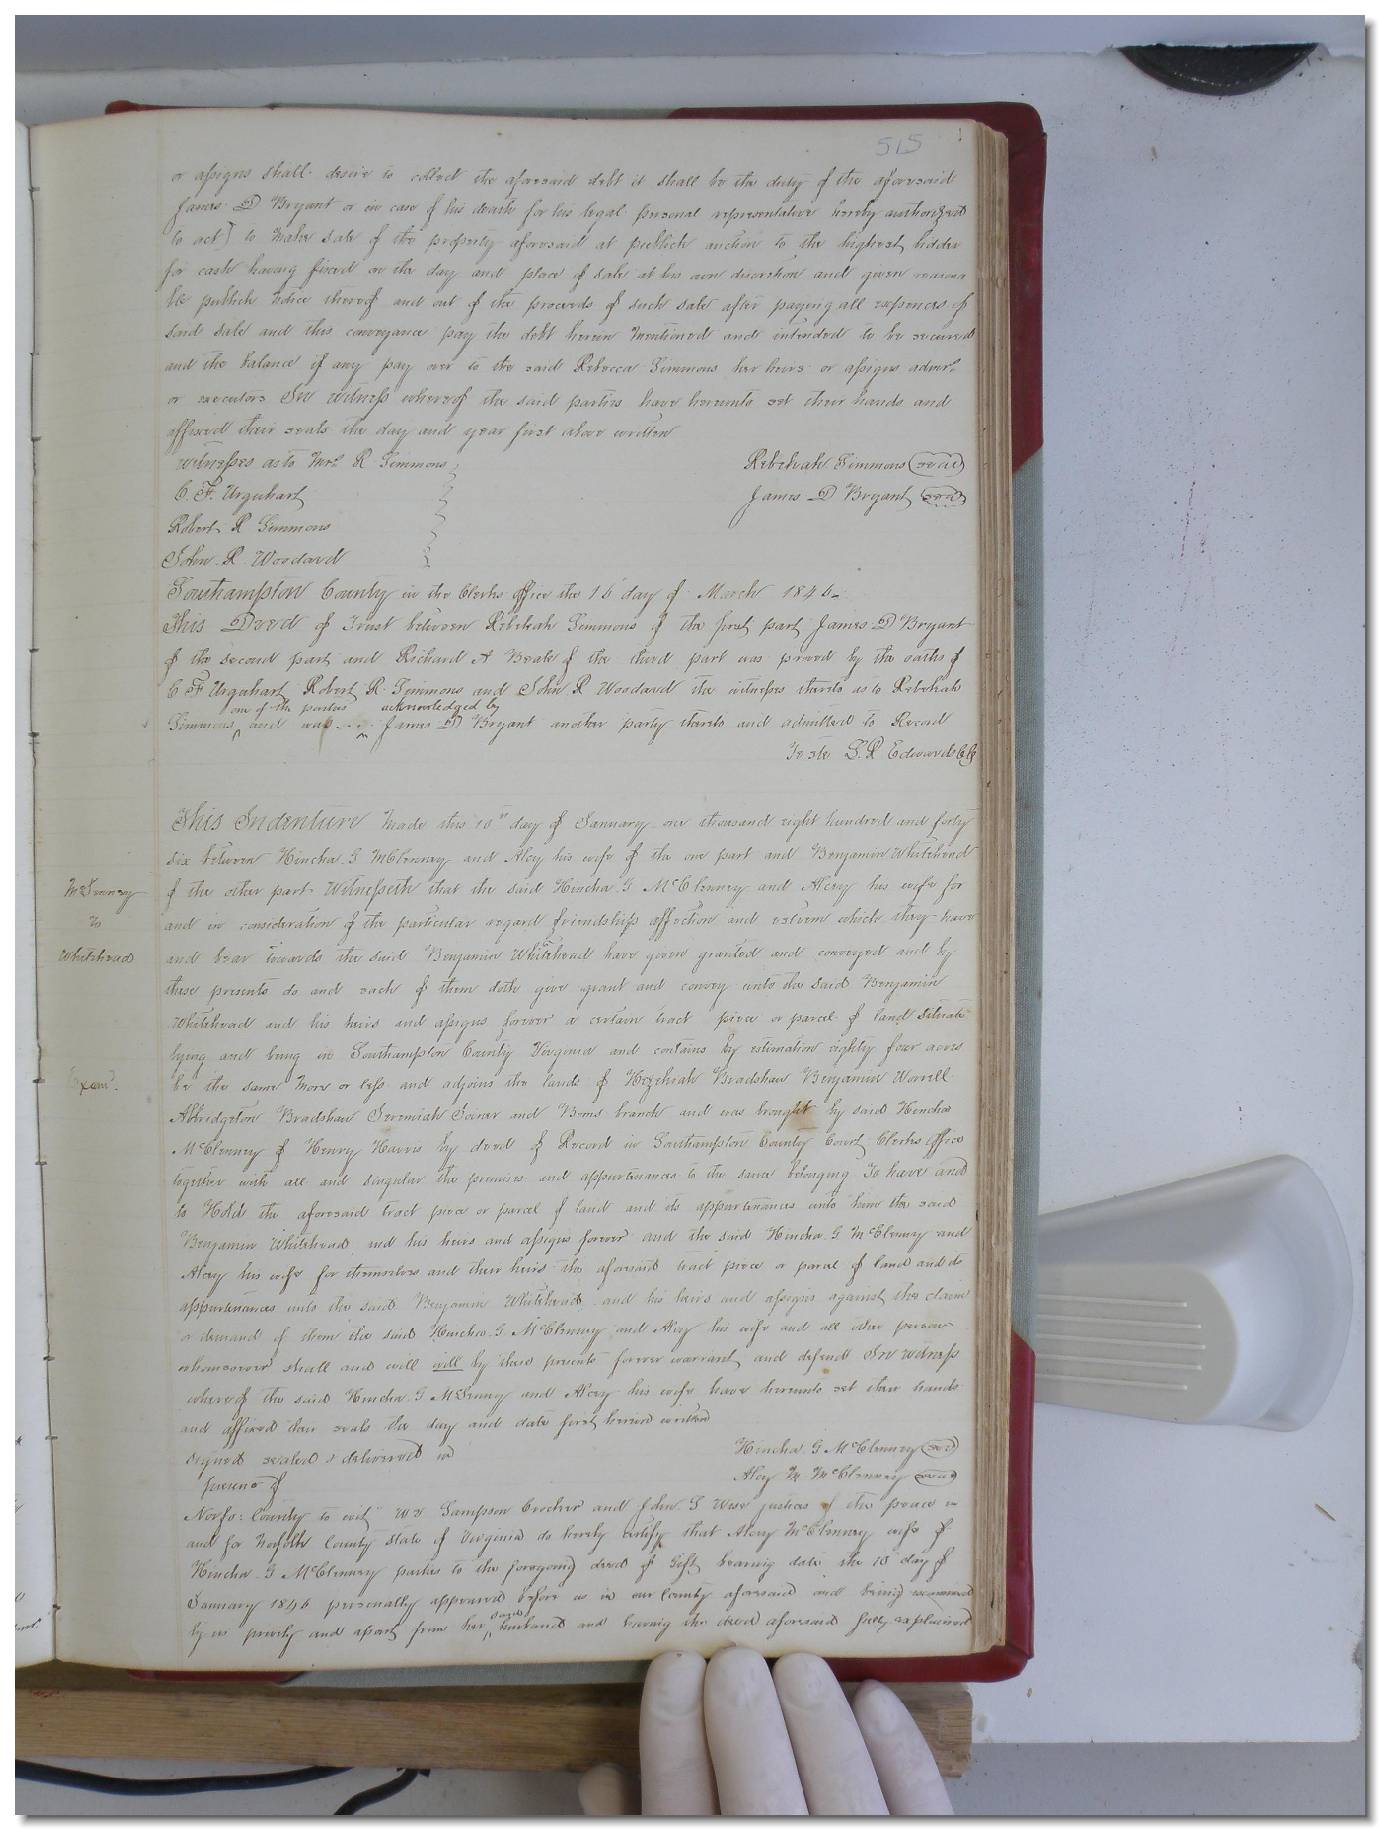 515
or assigns shall desire to collect the aforesaid debt it shall be the duty of the aforesaid
James D Bryant or in case of his death for his legal personal representative hereby authorized
to act) to make sale of the property aforesaid at publick auction to the highest bidder
for cash having fixed on the day and place of sale at his own discretion and given reasona
ble publick notice thereof and out of the proceeds of such sale after paying all expences of
said sale and this conveyance pay the debt herein mentioned and intended to be secured
and the balance if any pay over to the said Rebecca Simmons her heirs or assigns admrs
or executors In witness whereof the said parties have hereunto set their hands and
affixed their seals the day and year first above written
Witnesses as to Mrs R Simmons
Rebekah Simmons (seal)
C. F. Urquhart
James D Bryant (seal)
Robert R Simmons
John R Woodard
Southampton County in the Clerks office the 16 day of March 1846
This Deed of Trust between Rebekah Simmons of the first part James D Bryant
of the second part and Richard A Beale of the third part was proved by the oaths of
C F Urquhart Robert R Simmons and John R Woodard the witnesses thereto as to Rebekah
one of the parties acknowledged by
Simmons and was James D Bryant another party thereto and admitted to Record
Teste L. R Edwards CC
This Indenture made this 10th day of January one thousand eight hundred and forty
six between Hincha G McClenney and Alcy his wife of the one part and Benjamin Whitehead
McLenney
to
Whitehead
of the other part Witnesseth that the said Hincha G McClenney and Alcey his wife for
and in consideration of the particular regard friendship affection and esteem which they have
and bear towards the said Benjamin Whitehead have given granted and conveyed and by
these presents do and each of them doth give grant and convey unto the said Benjamin
Whitehead and his heirs and assigns forever a certain tract piece or parcel of land situate
lying and being in Southampton County Virginia and contains by estimation eighty four acres
Exam.
be the same more or less and adjoins the lands of Hezekiah Bradshaw Benjamin Worrell
Albridgeton Bradshaw Jeremiah Joiner and Bems branch and was brought by said Hincha
McClenney of Henry Harris by deed of Record in Southampton County Court Clerks office
together with all and singular the premises and appurtenances to the same belonging To have and
to Hold the aforesaid tract piece or parcel of land and its appurtenances unto him the said
Benjamin Whitehead and his heirs and assigns forever and the said Hincha G McClenney and
Alcey his wife for themselves and their heirs the aforesaid tract piece or parcel of land and its
appurtenances unto the said Benjamin Whitehead and his heirs and assigns against the claim
or demand of them the said Hincha G McClenney and Alcy his wife and all other person
whomsoever shall and will will by these presents forever warrant and defend In witness
whereof the said Hincha G McLenney and Alcey his wife have hereunto set their hands
and affixed their seals the day and date first herein written
signed sealed & delivered in
Hincha G McClenney (seal)
presence of
Alcy M McClenney (seal)
Norfo: County to wit We Sampson Crocker and John S Wise justices of the peace in
and for Norfolk County State of Virginia do hereby certify that Alcey McClenney wife of
Hincha G McClenney parties to the foregoing deed of Gift bearing date the 10 day of
January 1846 personally appeared before us in our County aforesaid and being examined
by us privily and apart from her said husband and having the deed aforesaid fully explained